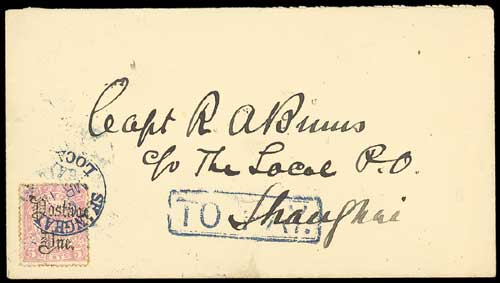 Capt R A Binns
c/o The Local P.O.
Shanghai
TO PAY.
SHANGHAI
LOCAL
Postage
Due.